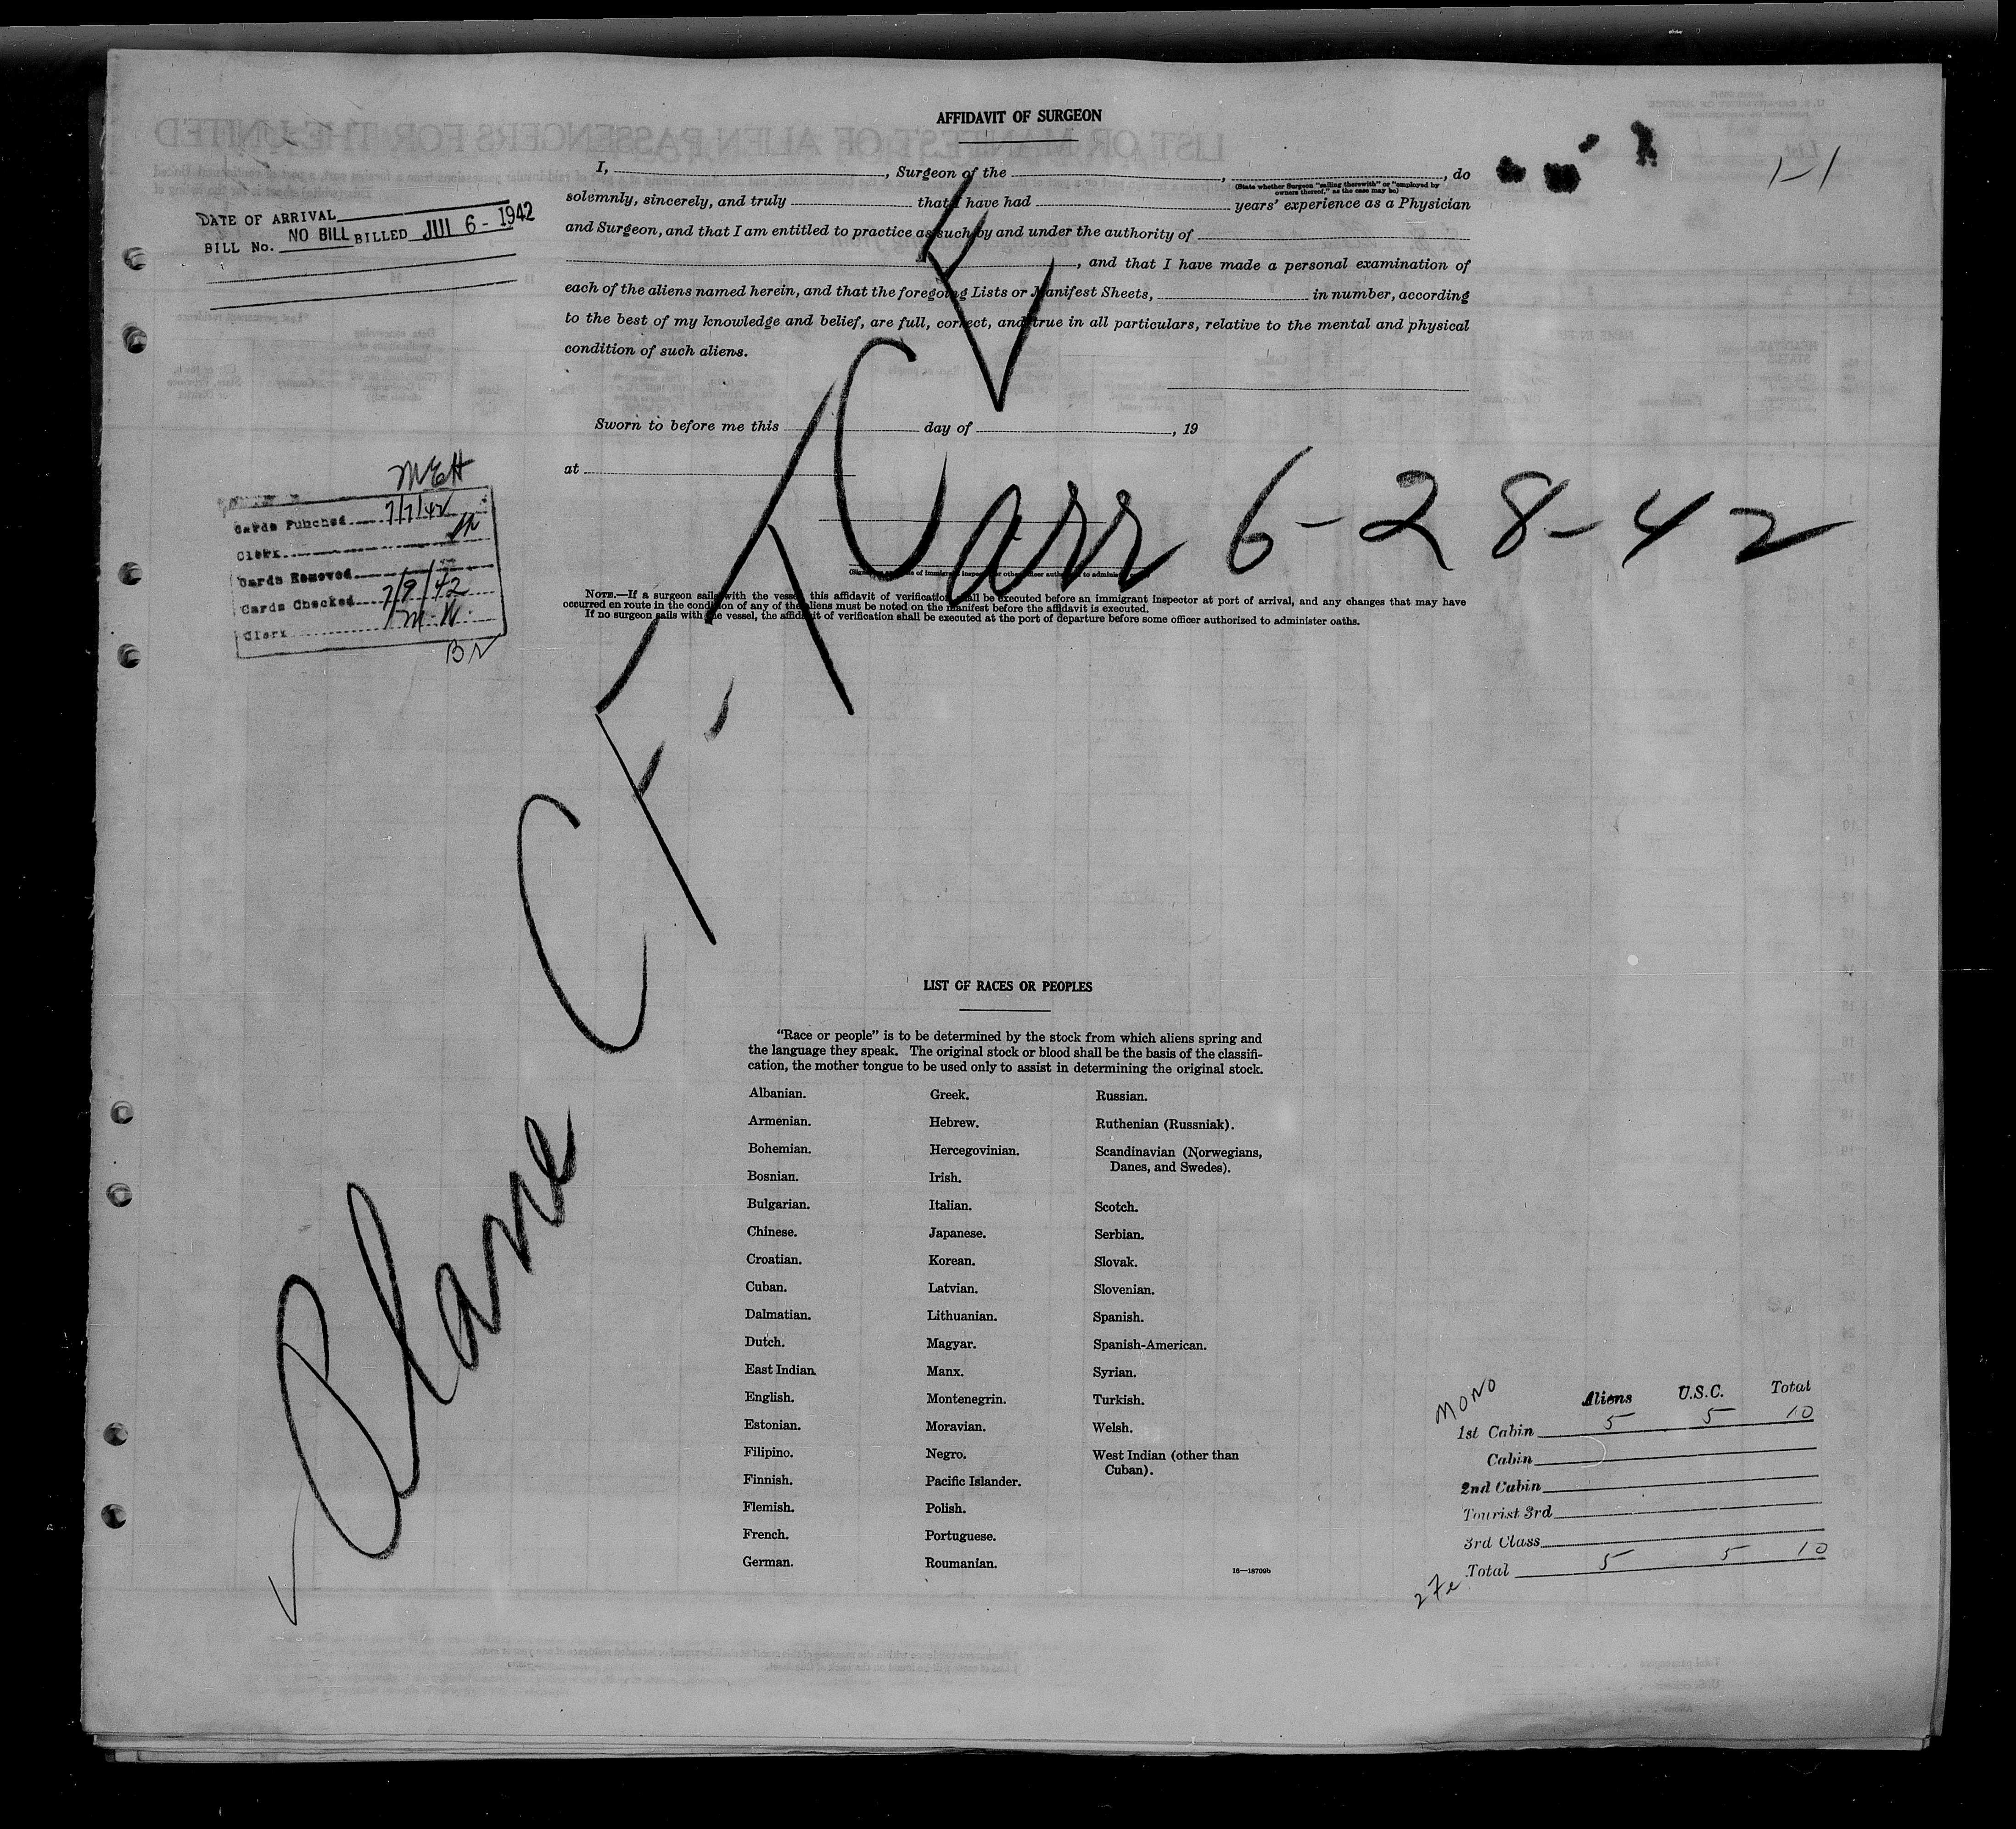 AFFIDAVIT OF SURGEON
I, , Surgeon of the , , do
(State whether Surgeon "sailing therewith" or "employed by
owners thereof," as the case may be)
solemnly, sincerely, and truly that I have had years' experience as a Physician
and Surgeon, and that I am entitled to practice as such by and under the authority of
, and that I have made a personal examination of
each of the aliens named herein, and that the foregoing Lists or Manifest Sheets, in number, according
to the best of my knowledge and belief, are full, correct, and true in all particulars, relative to the mental and physical
condition of such aliens.
Sworn to before me this day of , 19
at
NOTE.—If a surgeon sails with the vessel this affidavit of verification shall be executed before an immigrant inspector at port of arrival, and any changes that may have
occurred en route in the condition of any of the aliens must be noted on the manifest before the affidavit is executed.
If no surgeon sails with the vessel, the affidavit of verification shall be executed at the port of departure before some officer authorized to administer oaths.
1-1
DATE OF ARRIVAL
BILL No. NO BILL BILLED JUL 6 - 1942
MEH
Cards Punched 7/7/42
Clerk
Cards Removed
Cards Checked 7/9/42
Clerk M.W.
Plane CF-
Carr 6-28-42
LIST OF RACES OR PEOPLES
"Race or people" is to be determined by the stock from which aliens spring and
the language they speak. The original stock or blood shall be the basis of the classifi-
cation, the mother tongue to be used only to assist in determining the original stock.
Albanian.
Armenian.
Bohemian.
Bosnian.
Bulgarian.
Chinese.
Croatian.
Cuban.
Dalmatian.
Dutch.
East Indian.
English.
Estonian.
Filipino.
Finnish.
Flemish.
French.
German.
Greek.
Hebrew.
Hercegovinian.
Irish.
Italian.
Japanese.
Korean.
Latvian.
Lithuanian.
Magyar.
Manx.
Montenegrin.
Moravian.
Negro.
Pacific Islander.
Polish.
Portuguese.
Roumanian.
Russian.
Ruthenian (Russniak).
Scandinavian (Norwegians,
Danes, and Swedes).
Scotch.
Serbian.
Slovak.
Slovenian.
Spanish.
Spanish-American.
Syrian.
Turkish.
Welsh.
West Indian (other than
Cuban).
16—18709b
MONO
Aliens U.S.C. Total
1st Cabin 5 5 10
Cabin
2nd Cabin
Tourist 3rd
3rd Class
Total 5 5 10